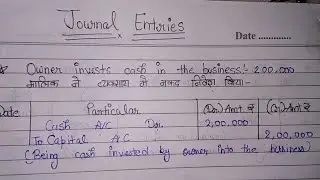 Journal Entries
Date .............
Owner invests cash in the business:- 200.000
मालिक ने व्यवसाय में नकद निवेश किया -
Date Particular (Dr.) Amt ₹ (Cr.) Amt ₹
Cash A/C Dr. 2,00,000
To Capital A/C 2,00,000
(Being cash invested by owner into the business)